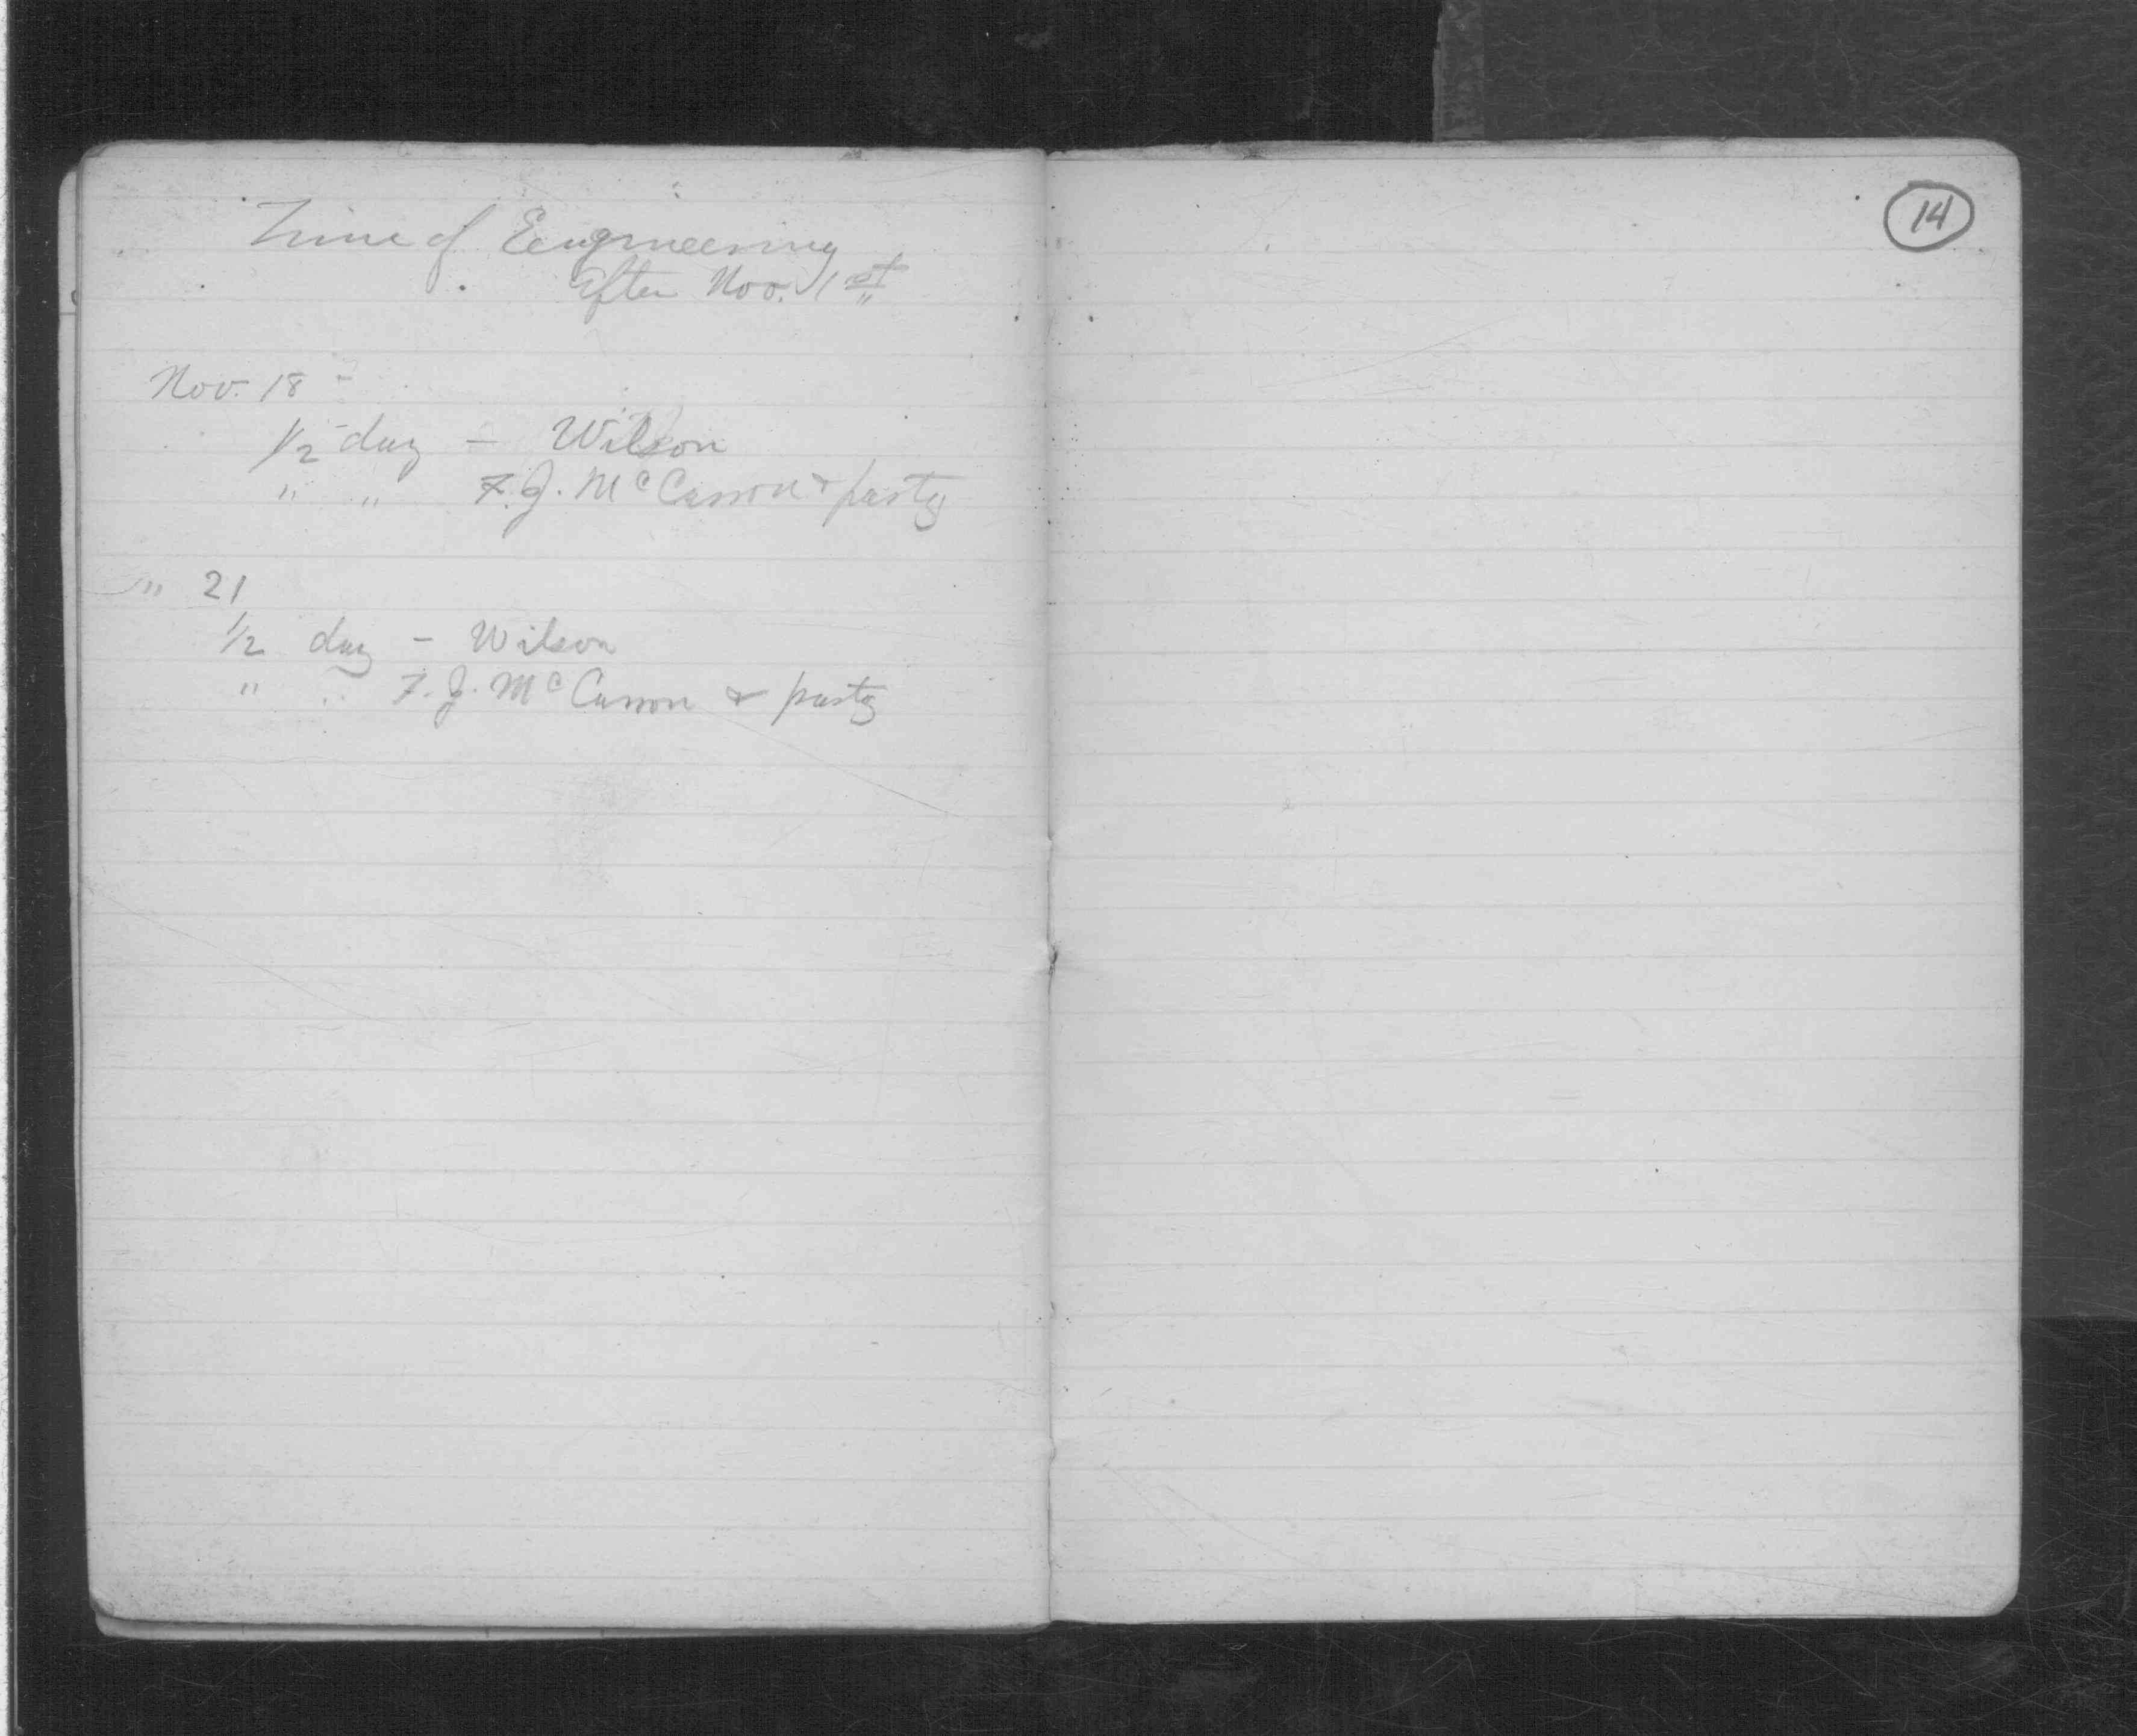 Time of Eengineering
After Nov. 1st
Nov. 18
1/2 day - Wilson
" " F. J. McCarron & party
" 21
1/2 day - Wilson
" " F. J. McCarron & party
14